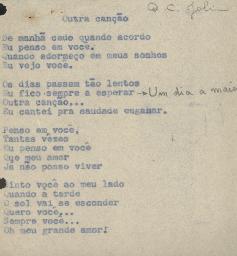 Outra canção
De manhã cedo quando acordo
Eu penso em você.
Quando adormeço em meus sonhos
Eu vejo você.
Os dias passam tão lentos
Eu fico sempre a esperar → Um dia a mais
Outra canção...
Eu cantei pra saudade enganar.
Penso em você,
Tantas vezes
Eu penso em você
Que meu amor
Já não posso viver
Sinto você ao meu lado
Quando a tarde
O sol vai se esconder
Quero você...
Sempre você...
Oh meu grande amor!